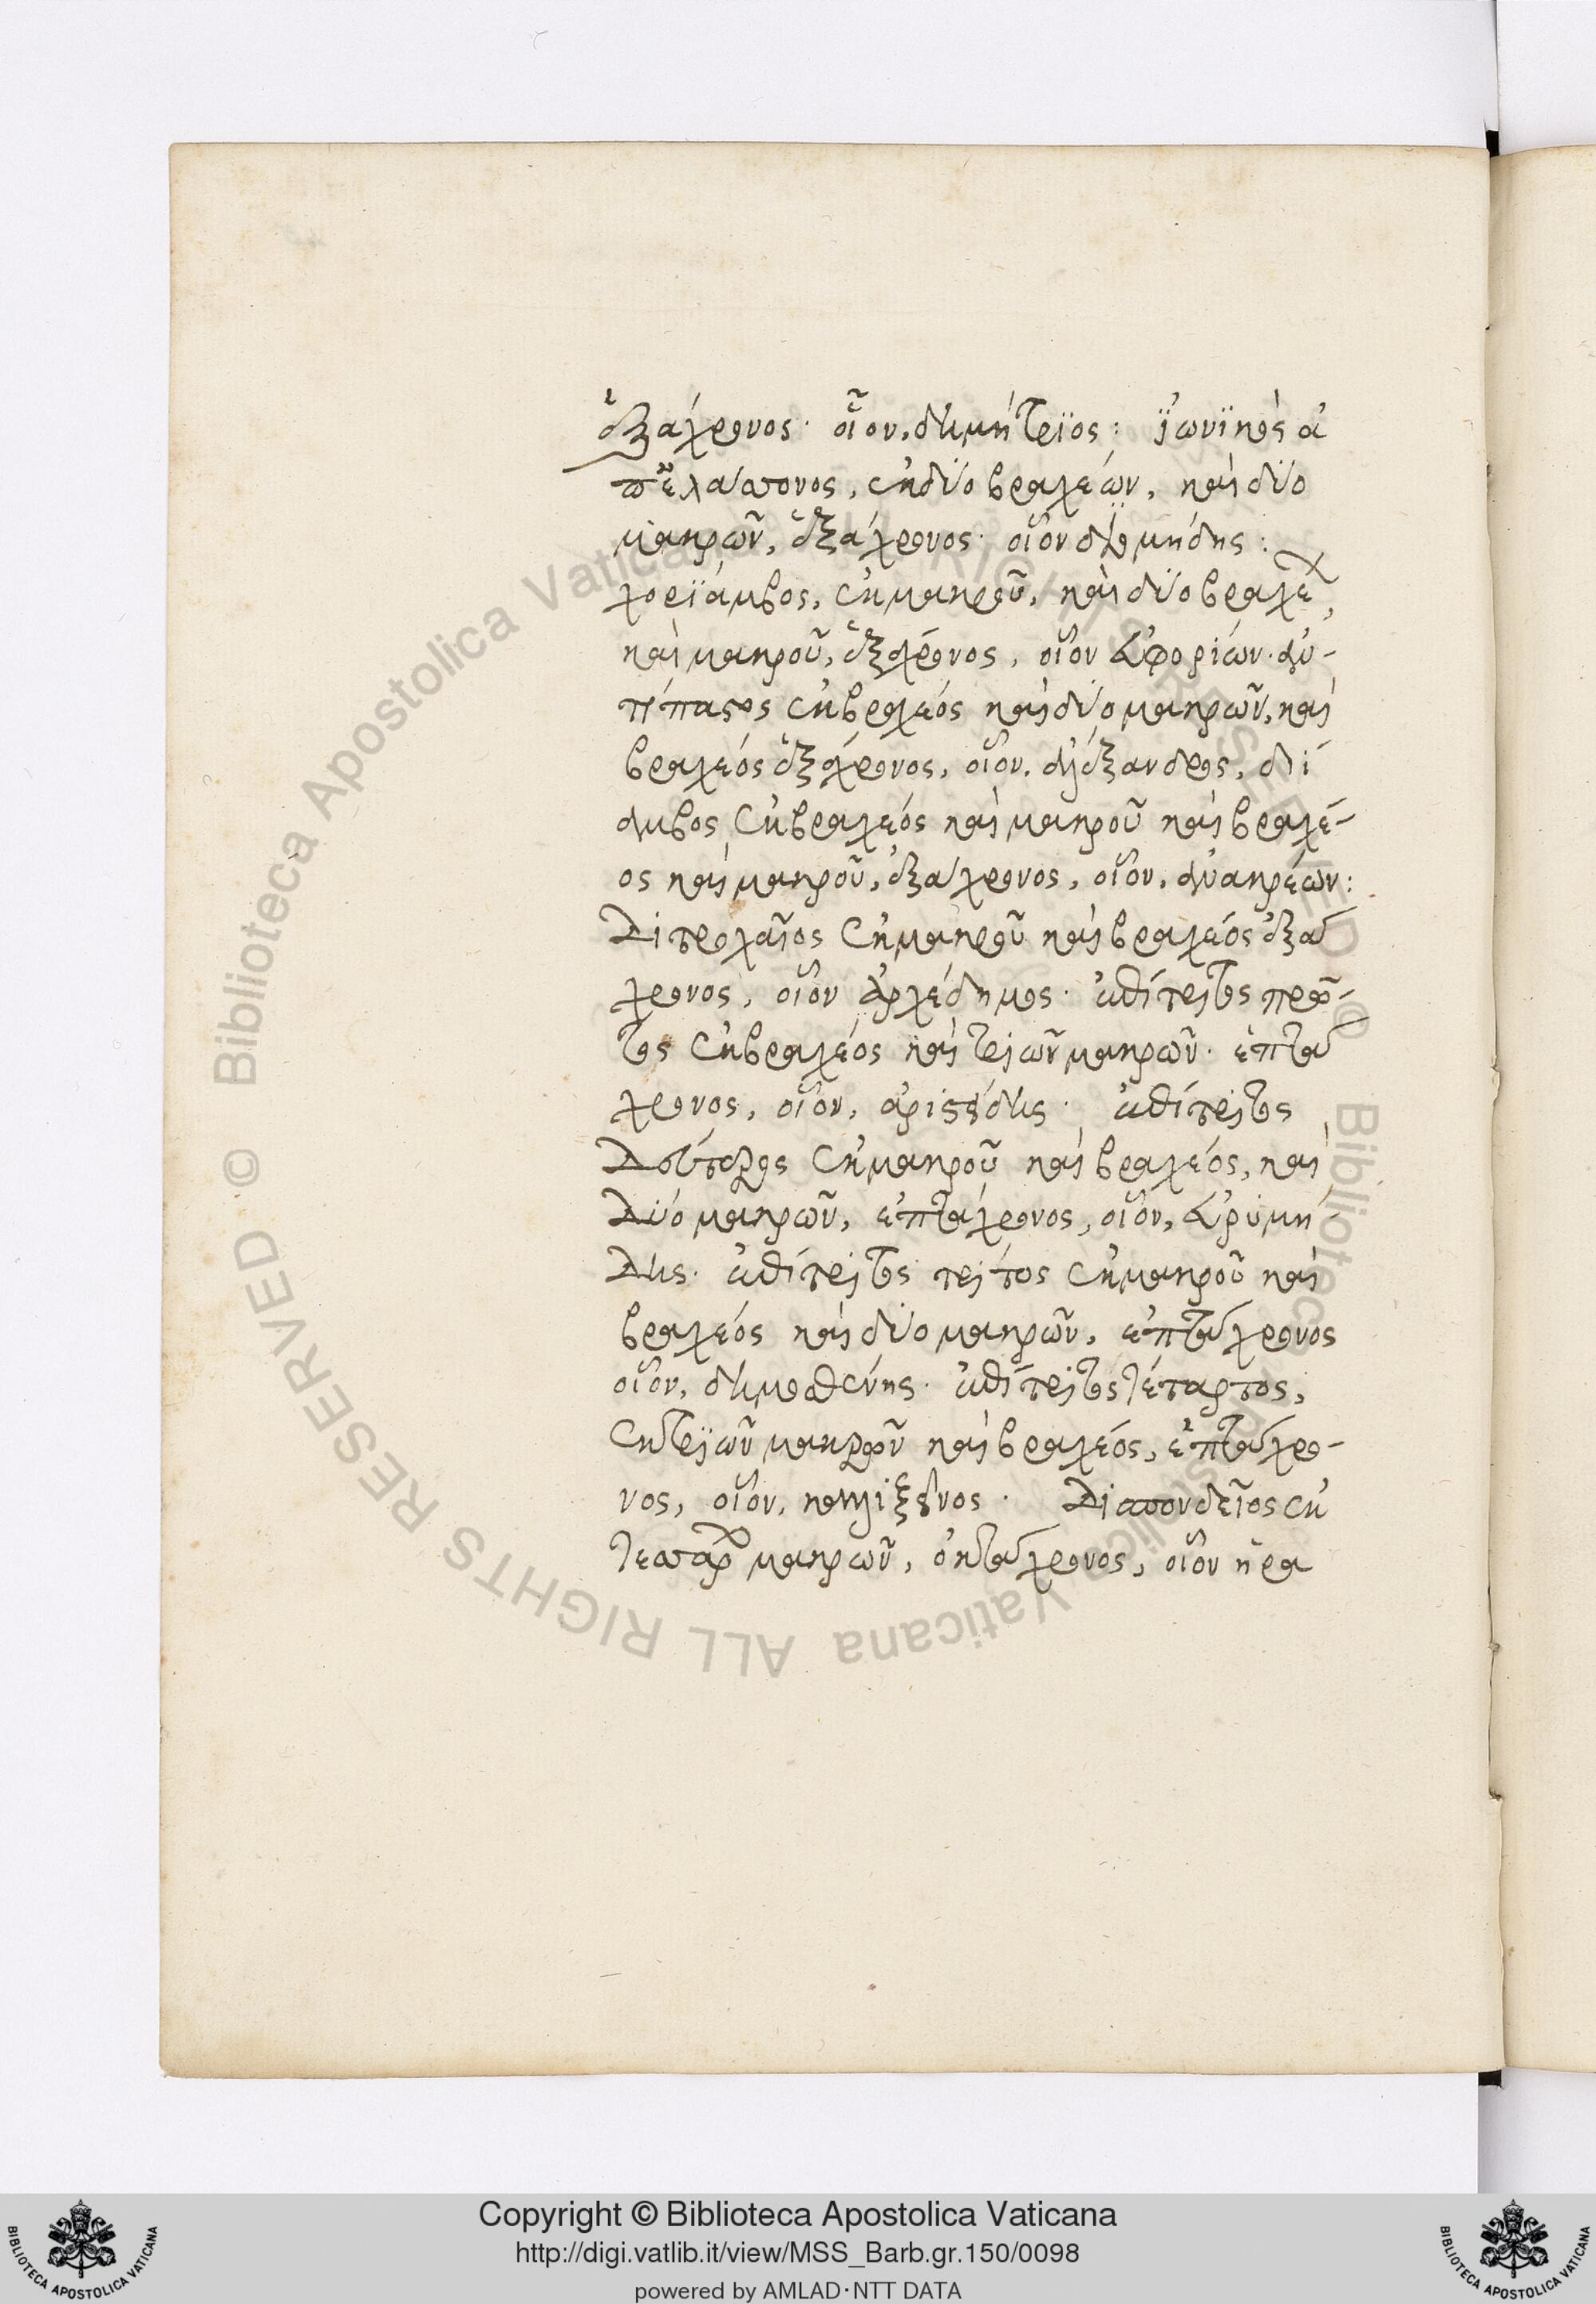 ἑξάχρονος· οἷον, δημήτριος: ἰωνικὸς ἀ
π' ἐλάσσονος, ἐκ δύο βραχέων, καὶ δύο
μακρῶν, ἑξάχρονος· οἷον διομήδης:
χορίαμβος, ἐκ μακροῦ, καὶ δύο βραχέ
καὶ μακροῦ, ἑξάχρονος, οἷον εὐφορίων· ἀν-
τίπαστος ἐκ βραχέος καὶ δύο μακρῶν, καὶ
βραχέος ἑξάχρονος, οἷον, ἀλέξανδρος, δι
ίαμβος ἐκ βραχέος καὶ μακροῦ καὶ βραχέ-
ος καὶ μακροῦ, ἑξάχρονος, οἷον, ἀνακρέων:
Διτροχαῖος ἐκ μακροῦ καὶ βραχέος ἑξά
χρονος, οἷον ἀρχέδημος· ἐπίτριτος πρῶ-
τος ἐκ βραχέος καὶ τριῶν μακρῶν· ἑπτά
χρονος, οἷον, ἀριστείδης· ἐπίτριτος
Δεύτερος ἐκ μακροῦ καὶ βραχέος, καὶ
Δύο μακρῶν, ἑπτάχρονος, οἷον, εὐρυμή
Δης· ἐπίτριτος τρίτος ἐκ μακροῦ καὶ
βραχέος καὶ δύο μακρῶν, ἑπτάχρονος
οἷον, δημοσθένης· ἐπίτριτος τέταρτος,
ἐκ τριῶν μακρῶν καὶ βραχέος, ἑπτάχρο-
νος, οἷον, καλλίξεινος· Δισπονδεῖος ἐκ
τεσσάρων μακρῶν, ὀκτάχρονος, οἷον ἡρα
Copyright © Biblioteca Apostolica Vaticana
http://digi.vatlib.it/view/MSS_Barb.gr.150/0098
powered by AMLAD·NTT DATA
BIBLIOTECA APOSTOLICA VATICANA
BIBLIOTECA APOSTOLICA VATICANA
© Biblioteca Apostolica Vaticana ALL RIGHTS RESERVED
© Biblioteca Apostolica Vaticana ALL RIGHTS RESERVED